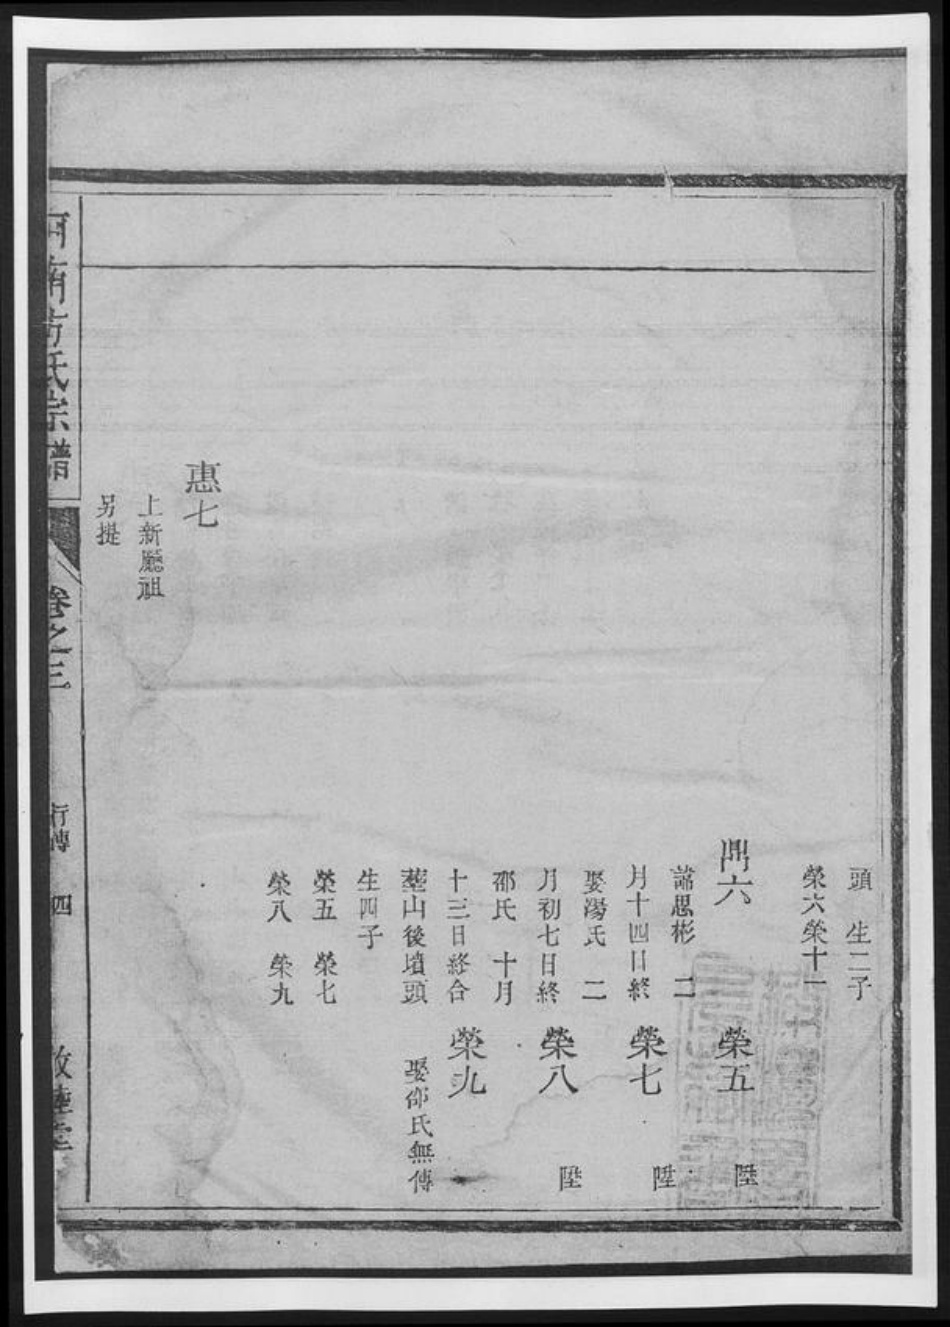 頭 生二子
榮六榮十一
鼎六
諱思彬 二
月十四日終
娶湯氏 二
月初七日終
邵氏 十月
十三日終合
塟山後墳頭
生四子
榮五 榮七
榮八 榮九
榮五 陞
榮七 陞
榮八 陞
榮九
娶邵氏無傳
惠七
上新廳祖
另提
河南方氏宗譜
卷之三
行傳 四
敦睦堂